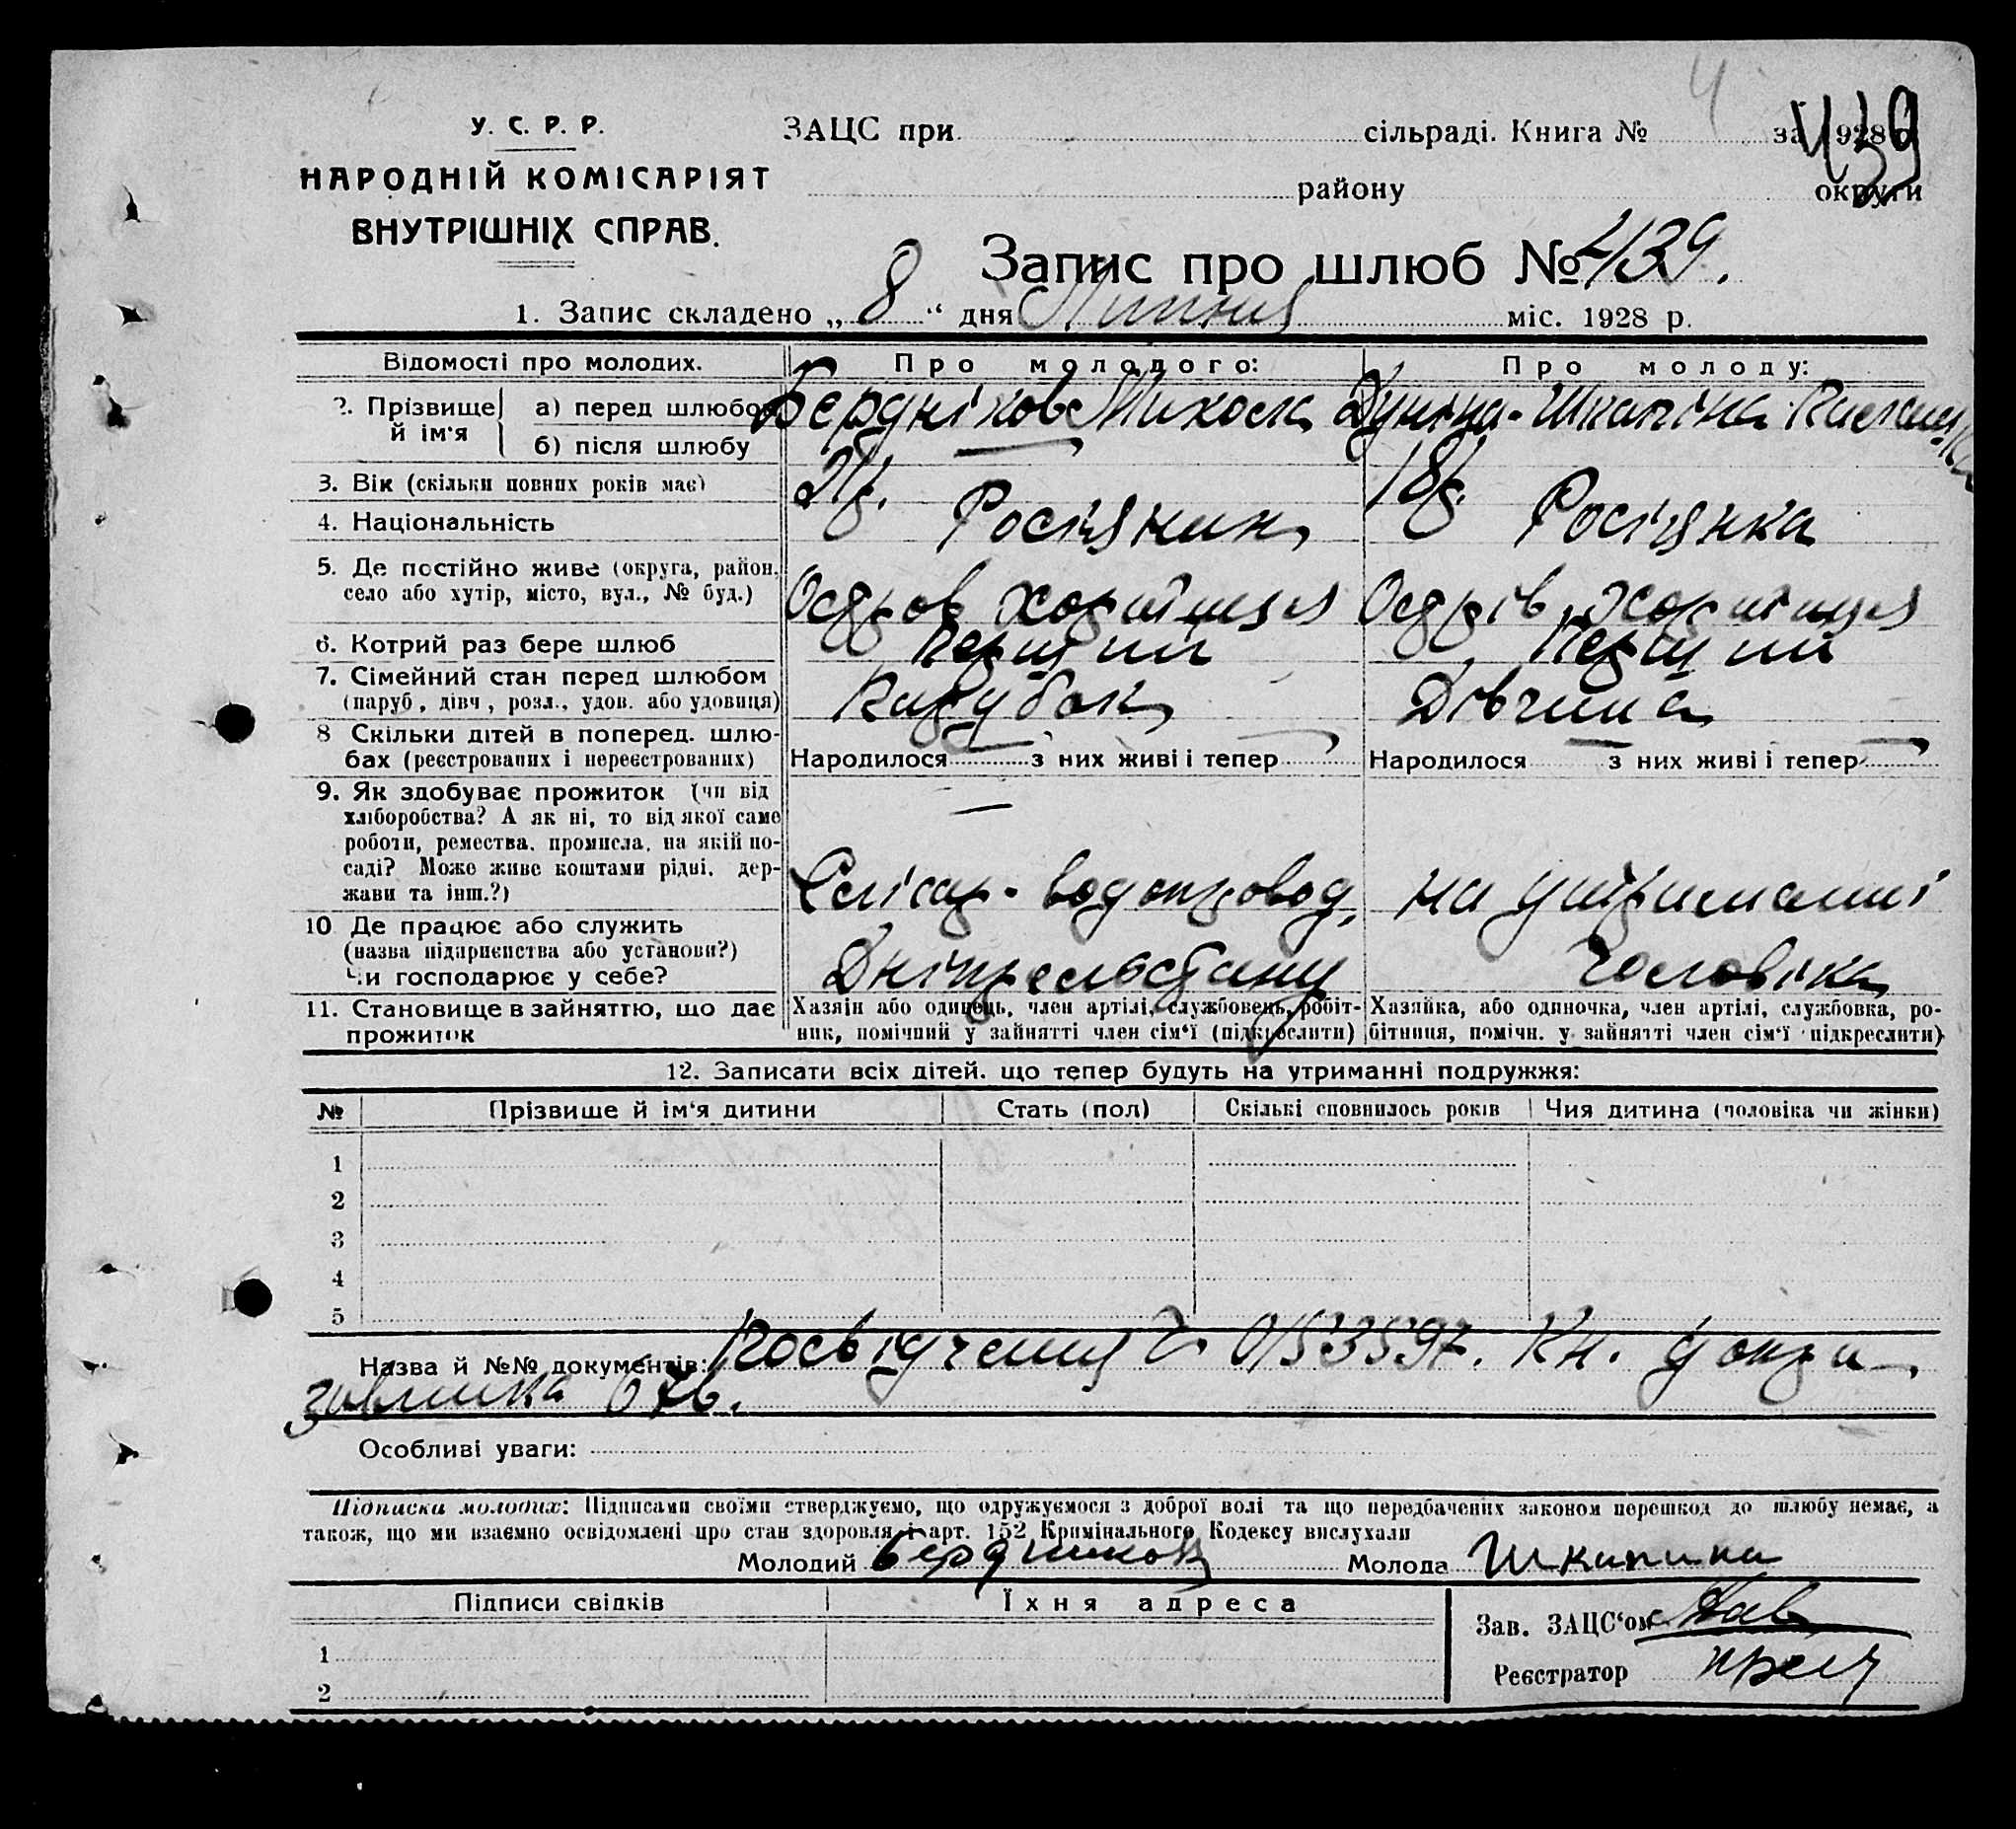 4
439
У. С. Р. Р.
НАРОДНІЙ КОМІСАРІЯТ
ВНУТРІШНІХ СПРАВ.
ЗАЦС при сільраді. Книга № за 1928 р.
району округи
Запис про шлюб № 439.
1. Запис складено „ 8 “ дня Липня міс. 1928 р.
Відомості про молодих. Про молодого: Про молоду:
2. Прізвище й ім'я { а) перед шлюбом Бердніков Микола Дуніна-Шкапіна
б) після шлюбу
3. Вік (скільки повних років має) 21 р. 18 р.
4. Національність Росіянин Росіянка
5. Де постійно живе (округа, район, село або хутір, місто, вул., № буд.) Остров Хортиця Острів Хортиця
6. Котрий раз бере шлюб Перший Перший
7. Сімейний стан перед шлюбом (паруб, дівч, розл., удов. або удовиця) Парубок Дівчина
8 Скільки дітей в поперед. шлюбах (реєстрованих і нереєстрованих) Народилося — з них живі і тепер Народилося — з них живі і тепер —
9. Як здобуває прожиток (чи від хліборобства? А як ні, то від якої саме роботи, ремества, промисла, на якій посаді? Може живе коштами рідні, держави та інш.?) — Слісар-водопровод. на утриманні
10 Де працює або служить (назва підприємства або установи?) Чи господарює у себе? Дніпрельстану Чоловіка
11. Становище в зайняттю, що дає прожиток Хазяїн або одинець, член артілі, службовець, робітник, помічний у зайнятті член сім'ї (підкреслити) Хазяйка, або одиночка, член артілі, службовка, робітниця, помічн. у зайнятті член сім'ї підкреслити)
12. Записати всіх дітей. що тепер будуть на утриманні подружжя:
№ Прізвище й ім'я дитини Стать (пол) Скількі сповнилось років Чия дитина (чоловіка чи жінки)
1
2
3
4
5
Назва й №№ документів: Посвідчення
676.
Особливі уваги:
Підписка молодих: Підписами своїми стверджуємо, що одружуємося з доброї волі та що передбачених законом перешкод до шлюбу немає, а
також, що ми взаємно освідомлені про стан здоровля і арт. 152 Кримінального Кодексу вислухали
Молодий Бердников Молода Шкапина
Підписи свідків Їхня адреса
Зав. ЗАЦС'ом
1
Реєстратор
2